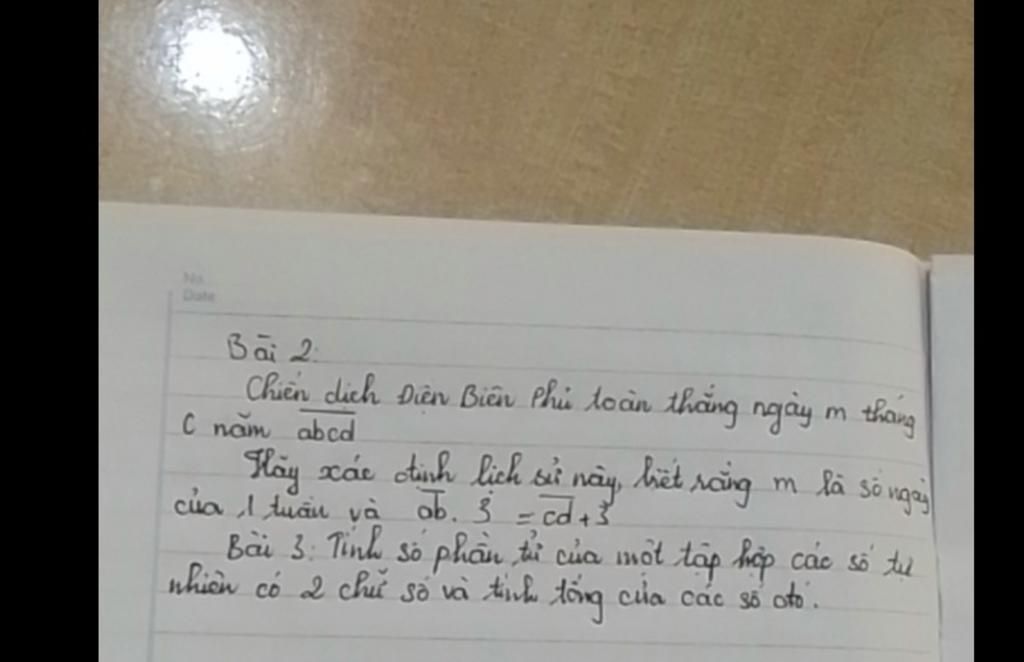 No.
Date
Bài 2:
Chiến dịch Điện Biên Phủ toàn thắng ngày m tháng
C năm abcd
Hãy xác định lịch sử này, biết rằng m là số ngày
của 1 tuần và ab. 3 = cd + 3
Bài 3: Tính số phần tử của một tập hợp các số tự
nhiên có 2 chữ số và tính tổng của các số đó.